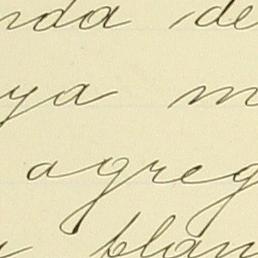 nda de
ya m
agreg
blan